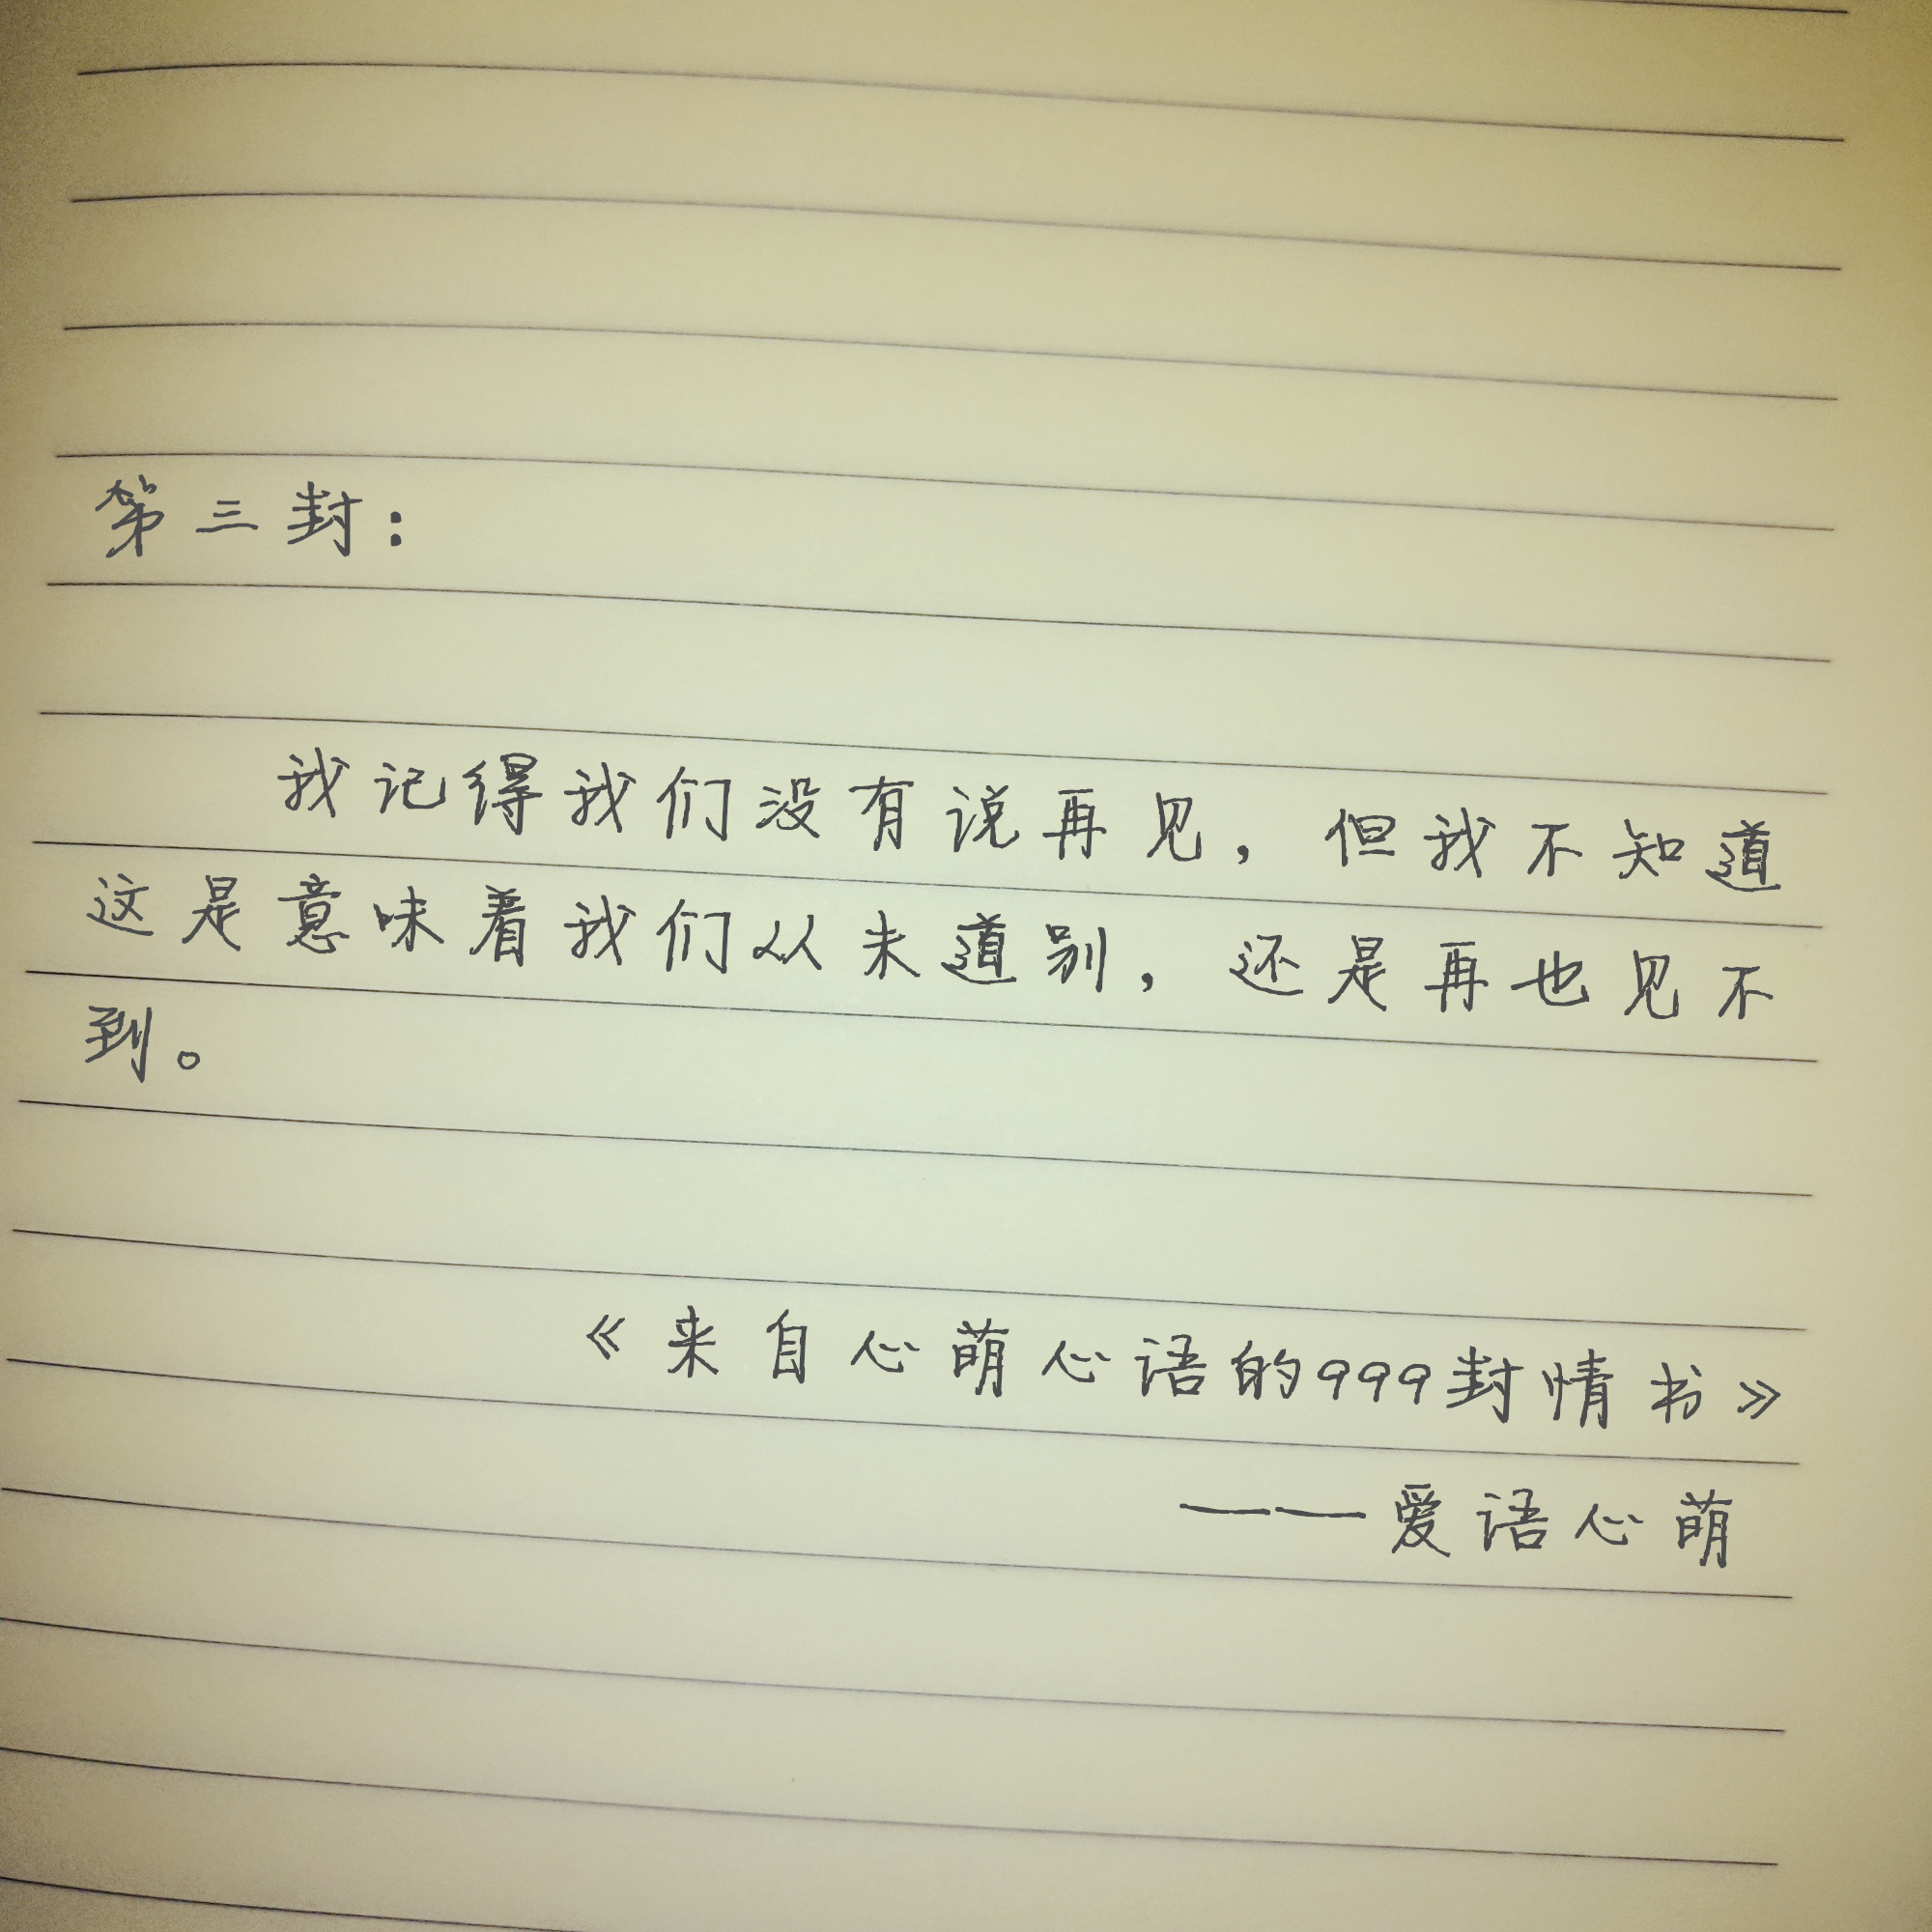 第三封：
我记得我们没有说再见，但我不知道
这是意味着我们从未道别，还是再也见不
到。
《来自心萌心语的999封情书》
——爱语心萌